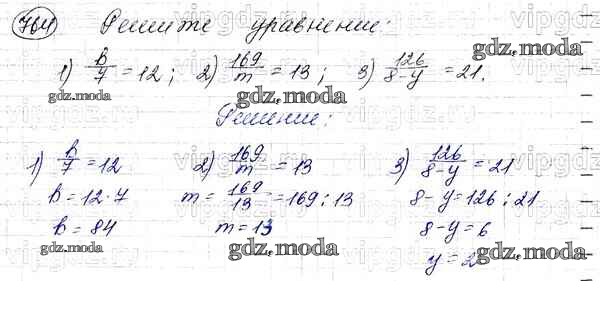 764 Решите уравнение:
1) b/7 = 12; 2) 169/m = 13; 3) 126/8-y = 21.
gdz.moda
gdz.moda
gdz.moda
Решение:
1) b/7 = 12 2) 169/m = 13 3) 126/8-y = 21
b = 12·7 m = 169/13 = 169:13 8-y = 126:21
b = 84 m = 13 8-y = 6
gdz.moda
gdz.moda
gdz.moda
y = 2